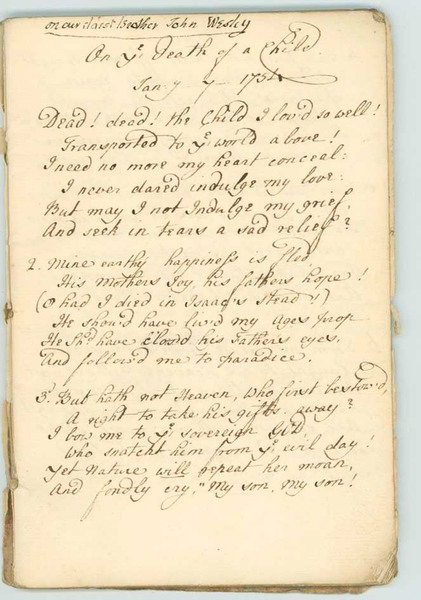 on our dearest Brother John Wesley
On yᵉ Death of a Child
Jany 7 - 1754
Dead! dead! the Child I lov'd so well!
Transported to yᵉ world above!
I need no more my heart conceal:
I never dared indulge my love:
But may I not Indulge my grief,
And seek in tears a sad relief?
2. Mine earthy happiness is fled
His Mothers Joy, his fathers hope!
(O had I died in Isaac's stead!)
He shou'd have liv'd my Ages prop
He Shd have closd his Fathers eyes,
And follow'd me to paradice.
3. But hath not Heaven, who first bestow'd,
A right to take his gifts away?
I bow me to yᵉ sovereign God
Who snatcht him from yᵉ evil day!
Yet Nature will repeat her moan,
And fondly cry, "My son, my son!